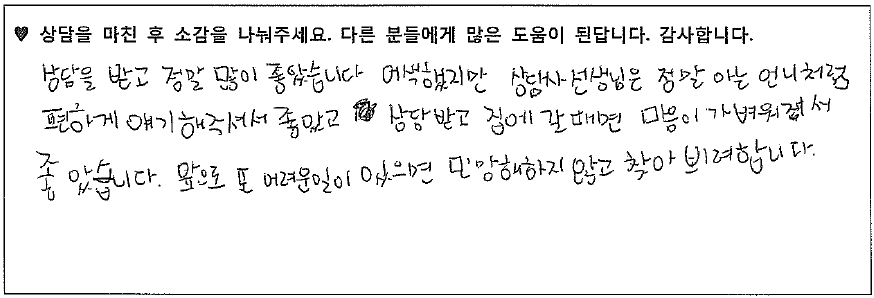 ♥ 상담을 마친 후 소감을 나눠주세요. 다른 분들에게 많은 도움이 된답니다. 감사합니다.
상담을 받고 정말 많이 좋았습니다 어색했지만 상담사선생님은 정말 아는 언니처럼
편하게 얘기해주셔서 좋았고 상담받고 집에 갈때면 마음이 가벼워져서
좋았습니다. 앞으로 또 어려운일이 있으면 민망해하지 않고 찾아 려합니다.